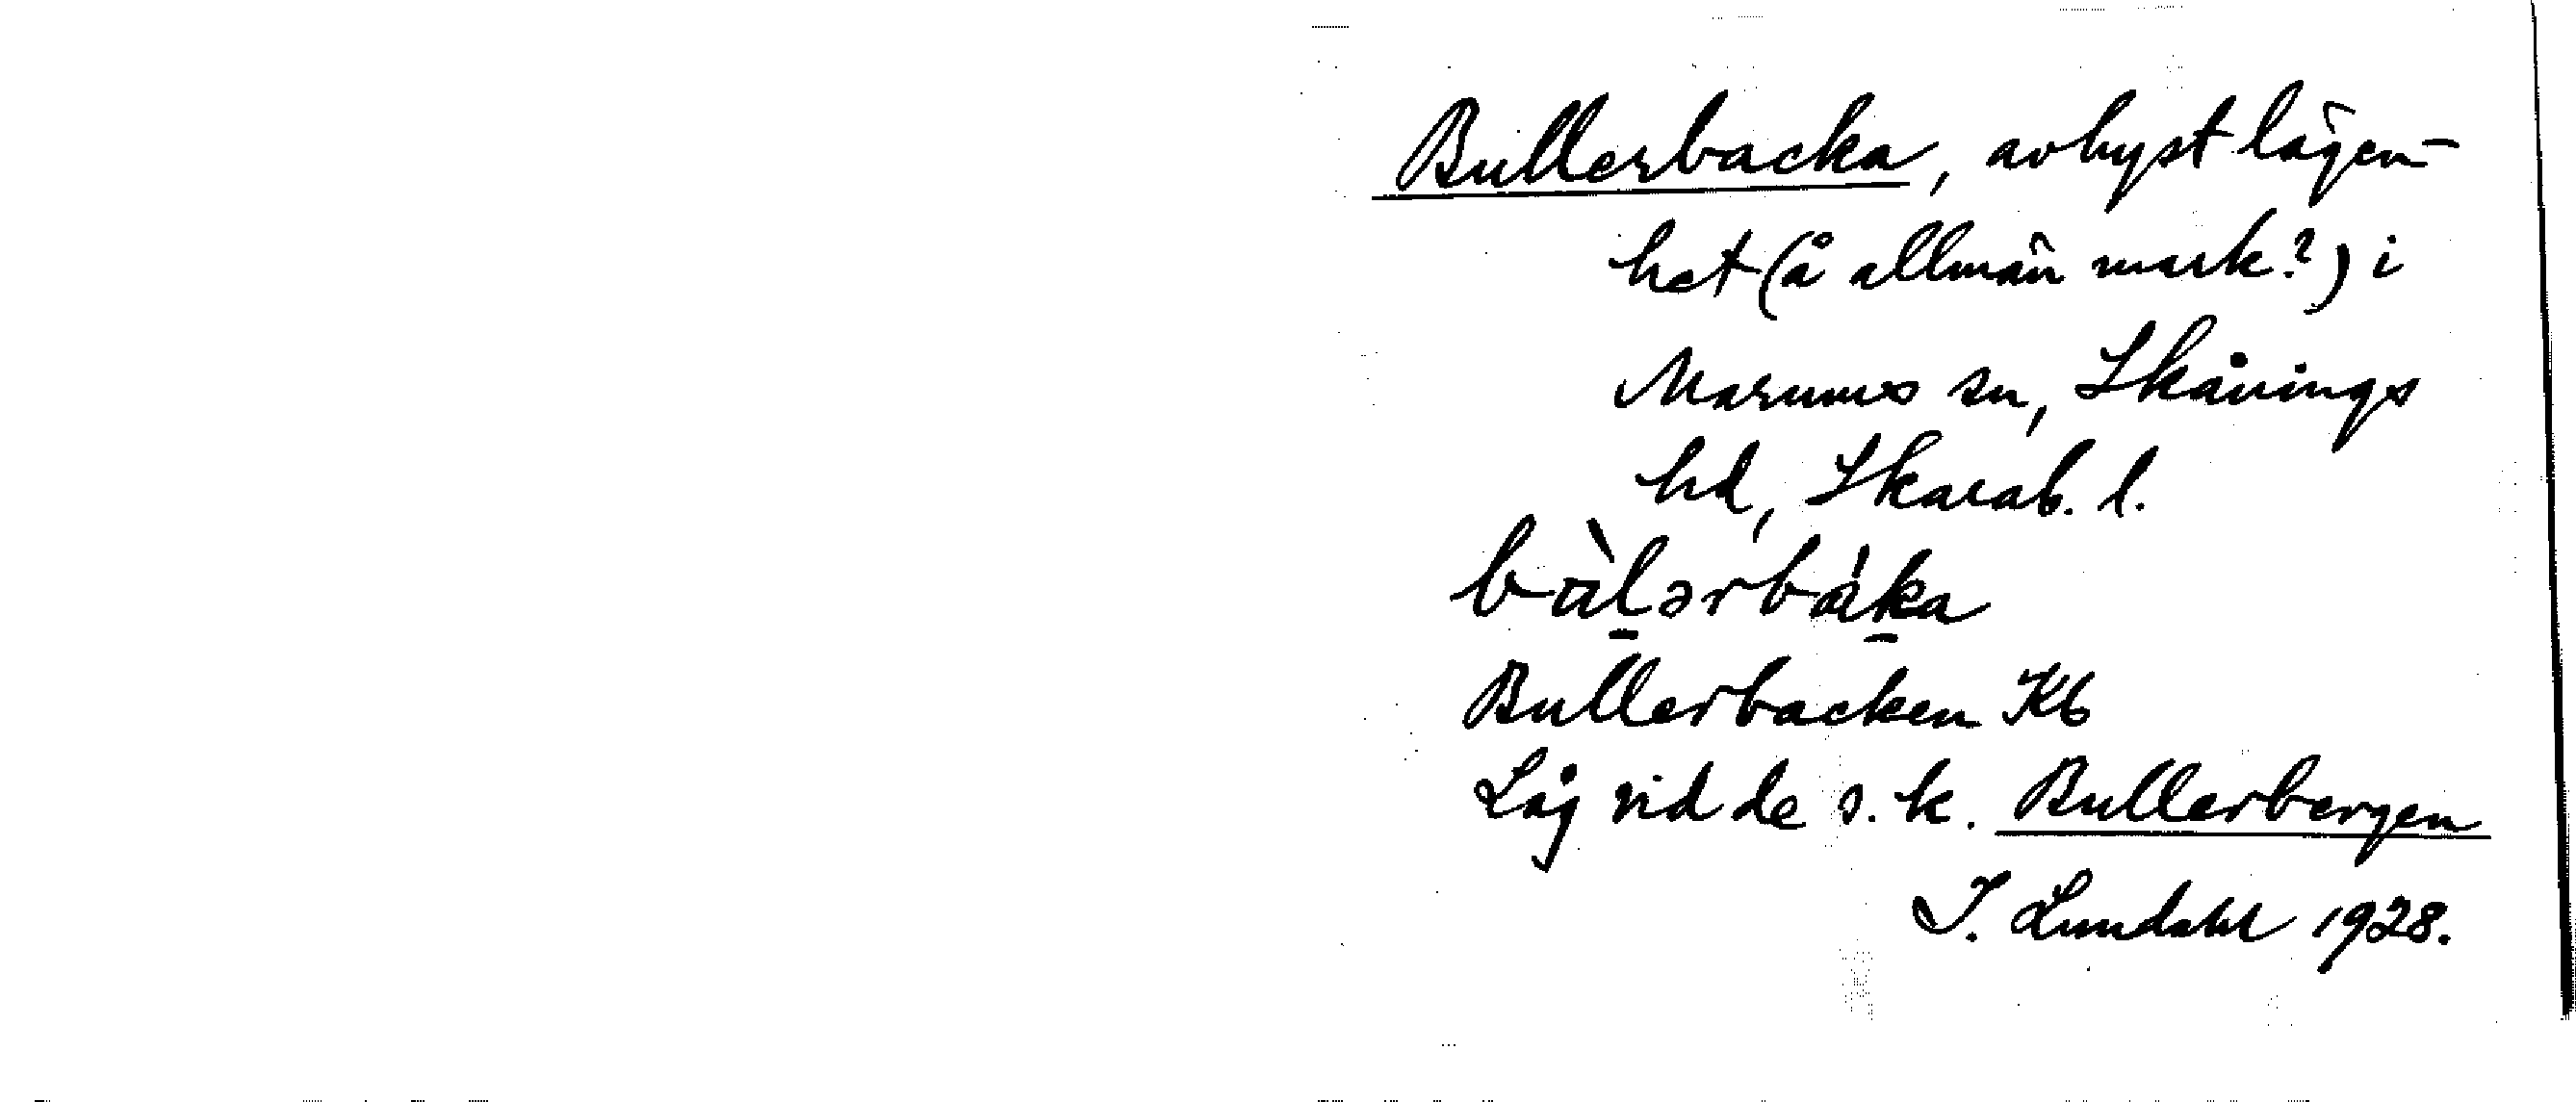 Bullerbacka, avhyst lägen-
het (å allmän mark?) i
Marums sn, Skånings
hd, Skarab. l.
bùl̠ərbák̠a
Bullerbacken Kb
Låg vid de s. k. Bullerbergen
I. Lundahl 1928.